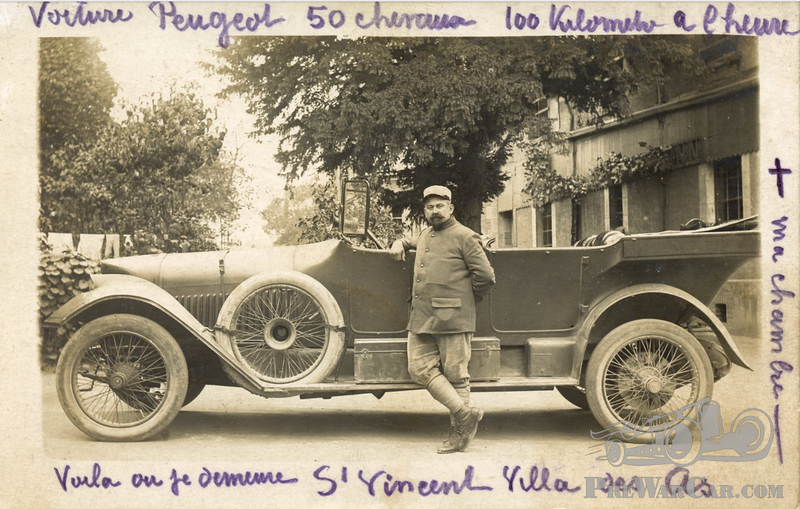 Voiture Peugeot 50 chevaux 100 Kilometr a l'heure
+ ma chambre
Voila ou je demeure St Vincent Villa des
PreWarCar.com